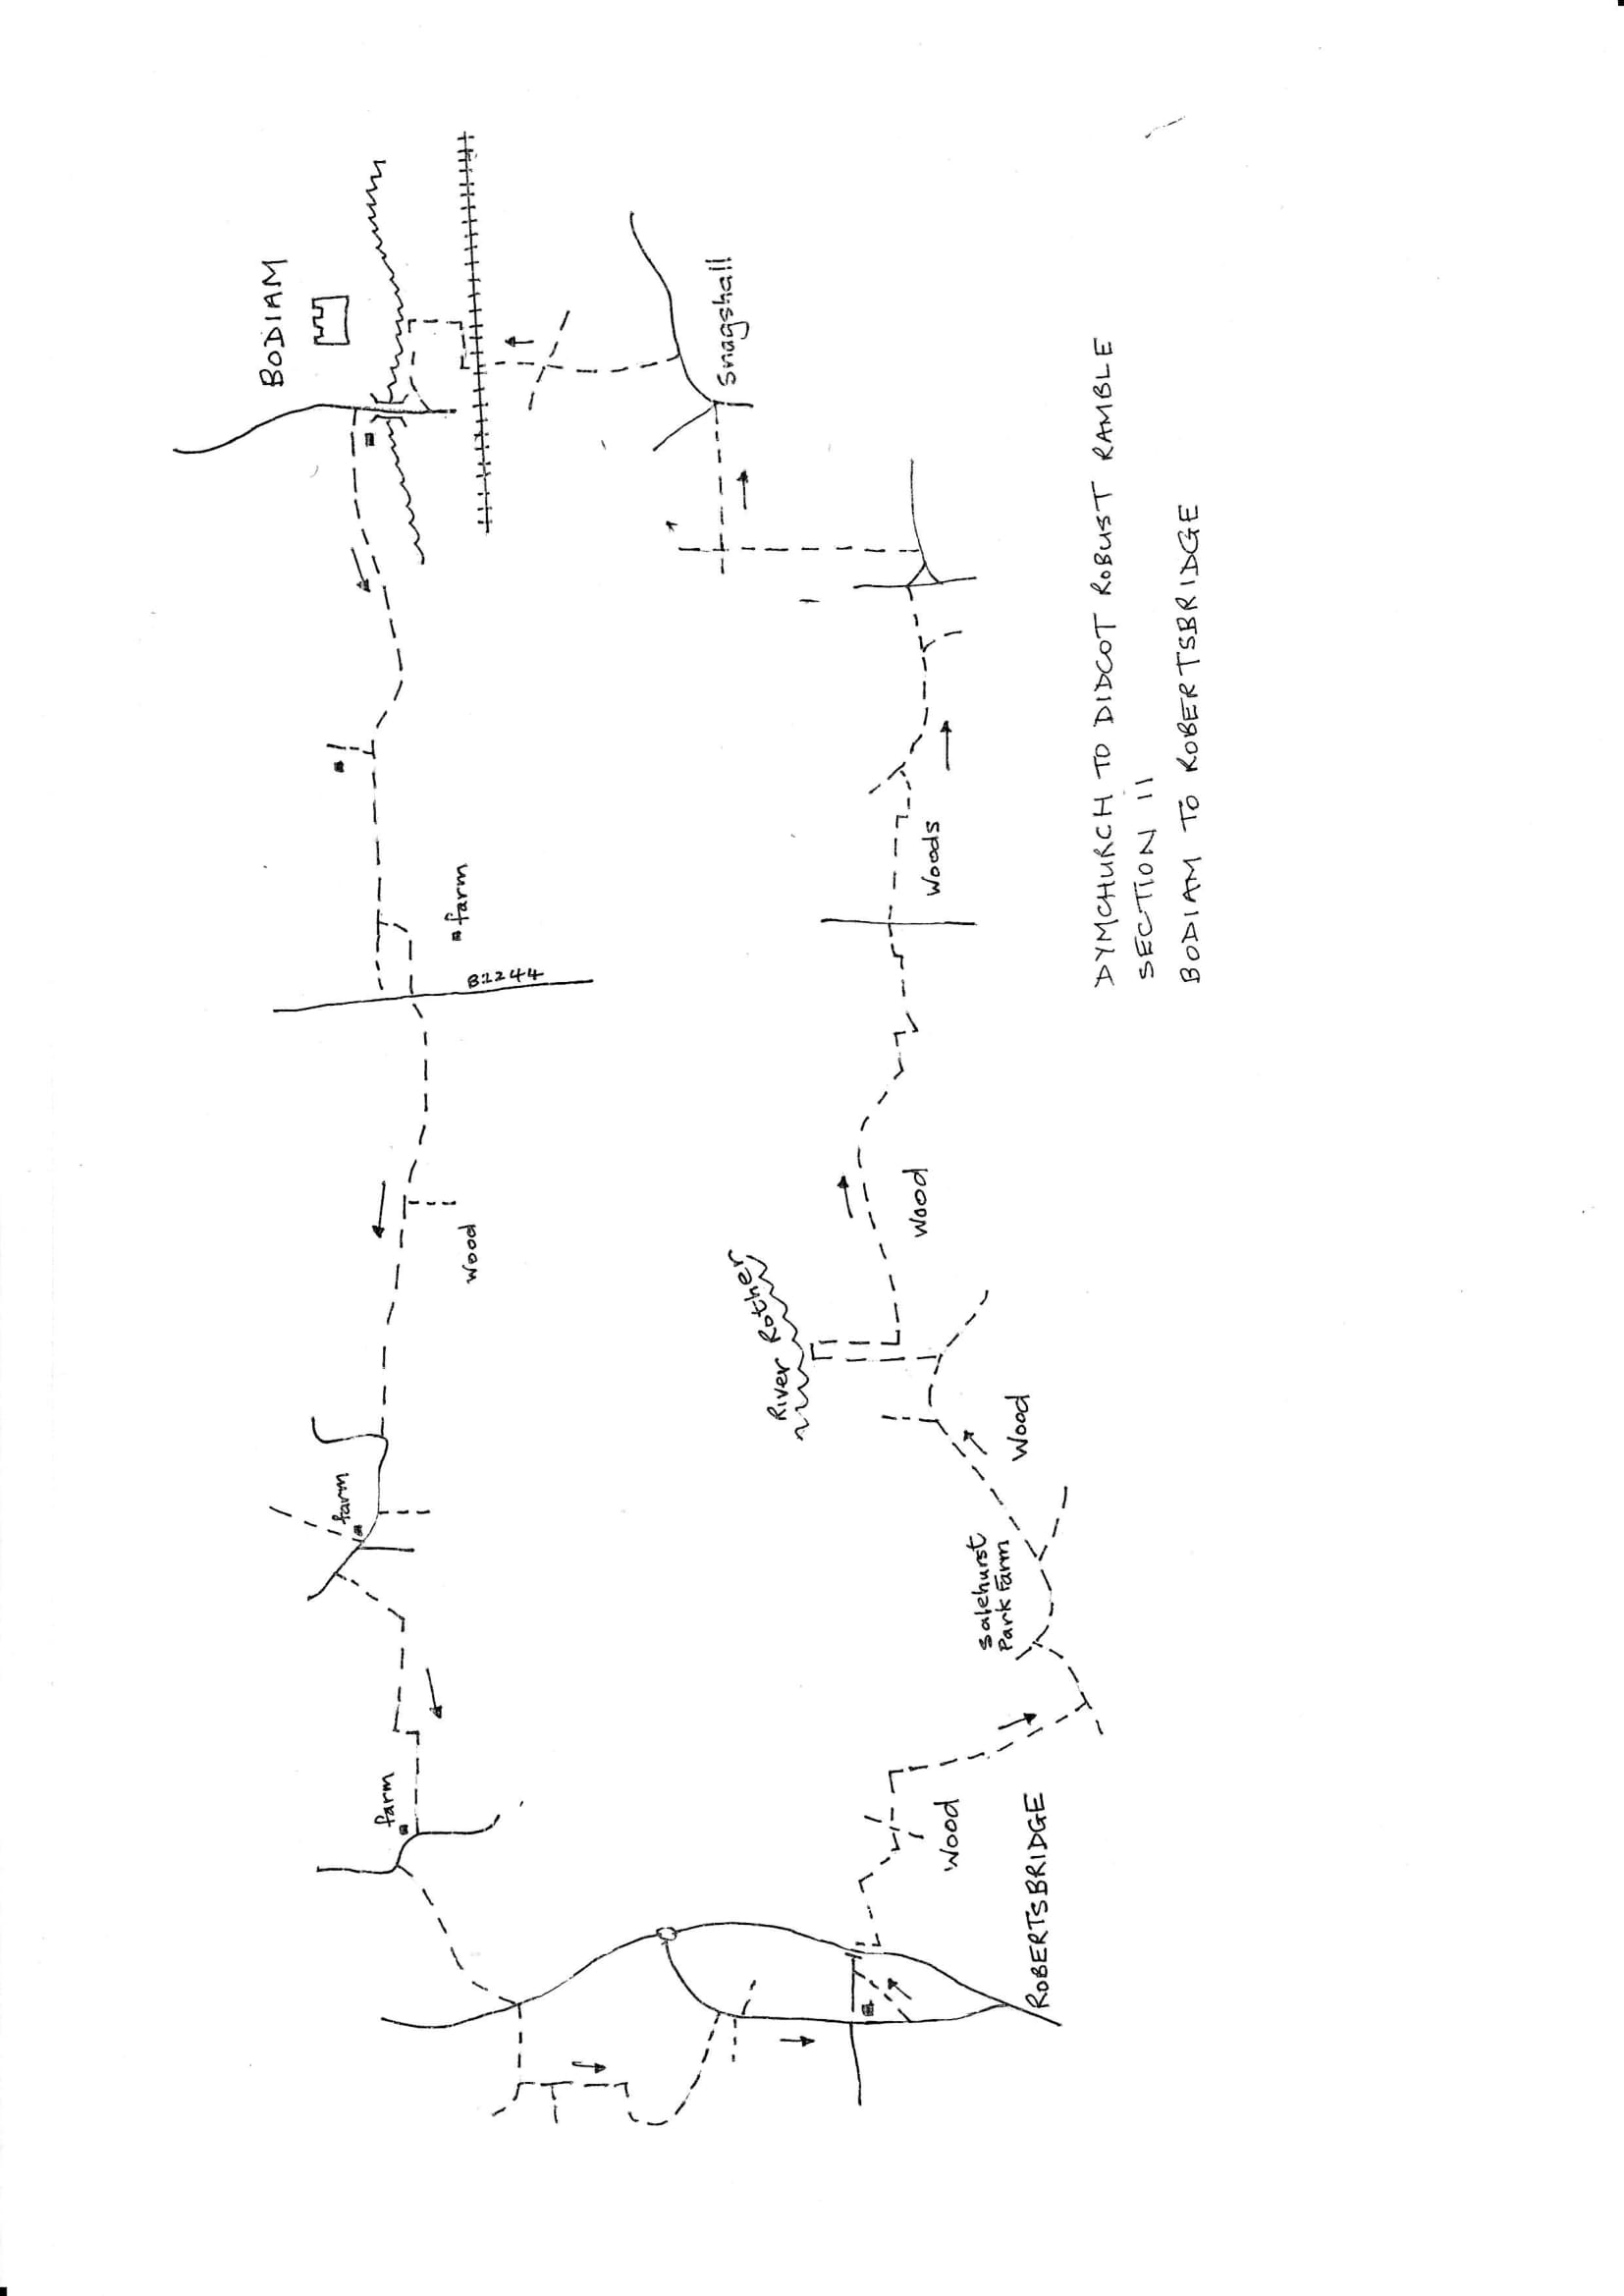 BODIAM
farm
farm
Wood
farm
B2244
Snagshall
River Rother
Wood
Woods
Wood
Salehurst
Park Farm
Wood
ROBERTSBRIDGE
DYMCHURCH TO DIDCOT ROBUST RAMBLE
SECTION 11
BODIAM TO ROBERTSBRIDGE